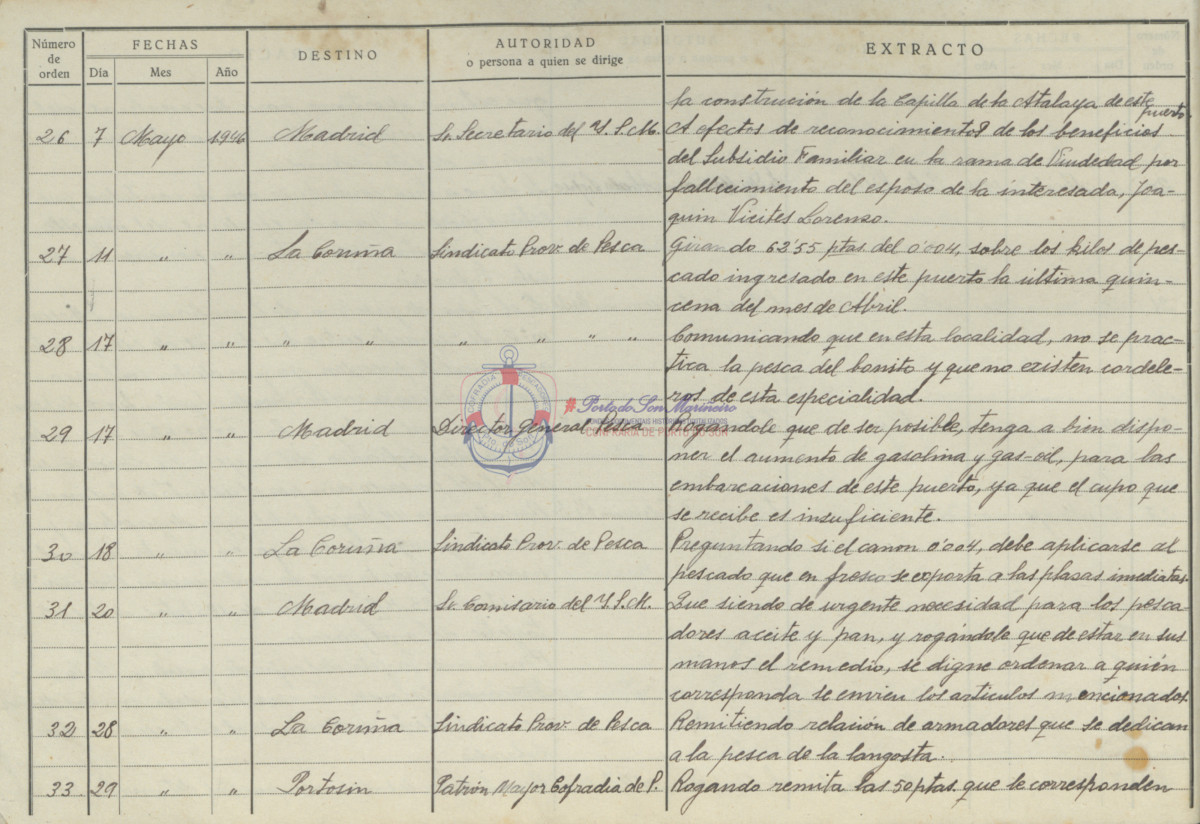 Número de orden FECHAS DESTINO AUTORIDAD o persona a quien se dirige EXTRACTO
Día Mes Año
la construción de la Capilla de la Atalaya de este puerto.
26 7 Mayo 1946 Madrid Sr. Secretario del Y.S.M. A efectos de reconocimiento de los beneficios
del Subsidio Familiar en la rama de Viudedad por
fallecimiento del esposo de la interesada, Joa-
quin Vicites Lorenzo.
27 11 " " La Coruña Sindicato Prov. de Pesca Girando 62'55 ptas del 0'004, sobre los kilos de pes-
cado ingresado en este puerto la última quin-
cena del mes de Abril.
28 17 " " " " " " " " Comunicando que en esta localidad, no se prac-
tica la pesca del bonito y que no existen cordele-
ros de esta especialidad.
29 17 " " Madrid Director General Pesca Rogándole que de ser posible, tenga a bien dispo-
ner el aumento de gasolina y gas-oil, para las
embarcaciones de este puerto, ya que el cupo que
se recibe es insuficiente.
30 18 " " La Coruña Sindicato Prov. de Pesca Preguntando si el canon 0'004, debe aplicarse al
pescado que en fresco se exporta a las plazas inmediatas.
31 20 " " Madrid Sr. Comisario del Y.S.M. Que siendo de urgente necesidad para los pesca-
dores aceite y pan, y rogándole que de estar en sus
manos el remedio, se digne ordenar a quién
corresponda se envien los articulos mencionados.
32 28 " " La Coruña Sindicato Prov. de Pesca Remitiendo relación de armadores que se dedican
a la pesca de la langosta.
33 29 " " Portosin Patrón Mayor Cofradia de P. Rogando remita las 50 ptas. que le corresponden
#Porto do Son Marineiro
CONFRARÍA DE PORTO DO SON